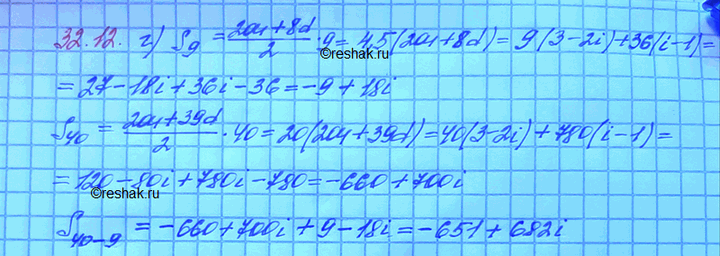 32.12. г) S₉ = (2a₁+8d)/2 · 9 = 4,5(2a₁+8d) = 9(3-2i)+36(i-1) =
©reshak.ru
= 27-18i+36i-36 = -9+18i
S₄₀ = (2a₁+39d)/2 · 40 = 20(2a₁+39d) = 40(3-2i)+780(i-1) =
= 120-80i+780i-780 = -660+700i
©reshak.ru
S₄₀₋₉ = -660+700i+9-18i = -651+682i